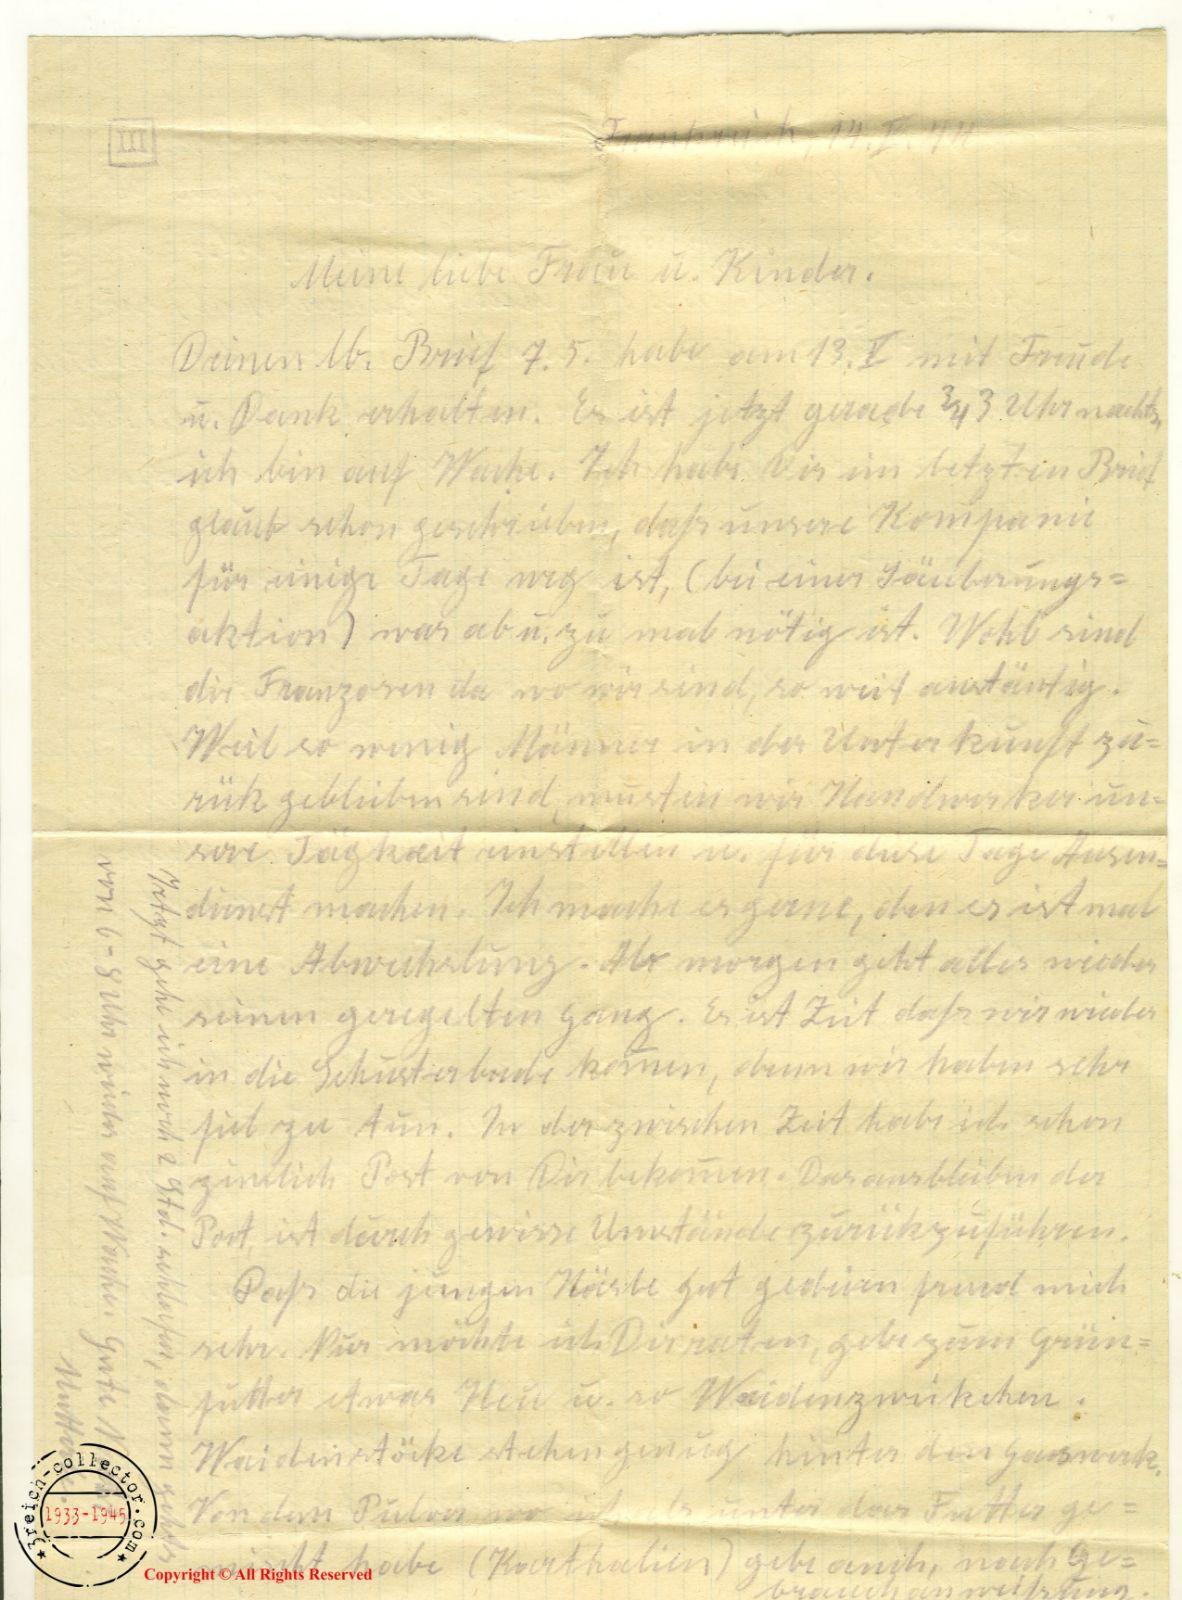 III
Frankreich, 14. V. 44
Meine liebe Frau u. Kinder.
Deinen lb. Brief 7. 5. habe am 13. V mit Freude
u. Dank erhalten. Es ist jetzt gerade 3/4 3 Uhr nachts,
ich bin auf Wache. Ich habe Dir im letzten Brief
glaub schon geschrieben, daß unsere Kompanie
für einige Tage weg ist, (bei einer Säuberungs=
aktion) was ab u. zu mal nötig ist. Wohl sind
die Franzosen da wo wir sind, so weit anständig.
Weil so wenig Männer in der Unterkunft zu=
rük geblieben sind, musten wir Handwerker un=
sere Tägkeit einstellen u. für diese Tage Ausen=
dienst machen. Ich mache es gerne, den es ist mal
eine Abwechslung. Ab morgen geht alles wieder
seinen geregelten Gang. Es ist Zeit daß wir wieder
in die Schusterbude kom̄en, denn wir haben sehr
fiel zu tun. In der zwischen Zeit habe ich schon
zimlich Post von Dir bekom̄en. Das ausbleiben der
Post, ist durch gewisse Umstände zurükzuführen.
Daß die jungen Häsle gut gedeien freud mich
sehr. Nur möchte ich Dir raten, gebe zum Grün=
futter etwas Heu u. so Waidenzweikchen.
Waidenstöcke stehen genug hinter den Gaswerk.
Von dem Pulver wo ich als unter das Futter ge=
mischt habe (Karthalien) gebe auch, nach Ge=
brauchanweißung.
Jetzt gehe ich noch 2 Std. schlafen, dann gehts
von 6-8 Uhr wieder auf Wache. Gute
3reich-collector.com
1933-1945
Copyright © All Rights Reserved